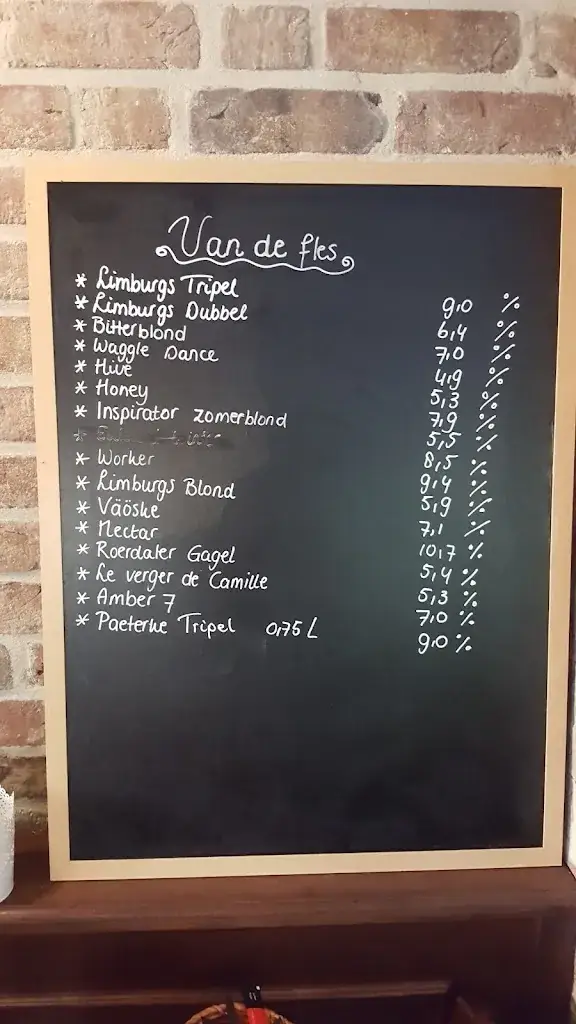 Van de fles
* Limburgs Tripel 9,0 %
* Limburgs Dubbel 6,4 %
* Bitterblond 7,0 %
* Waggle Dance 4,9 %
* Hive 5,3 %
* Honey 7,9 %
* Inspirator zomerblond 5,5 %
* 8,5 %
* Worker 9,4 %
* Limburgs Blond 5,9 %
* Väöske 7,1 %
* Nectar 10,7 %
* Roerdaler Gagel 5,4 %
* Le verger de Camille 5,3 %
* Amber 7 7,0 %
* Paeterke Tripel 0,75 L 9,0 %